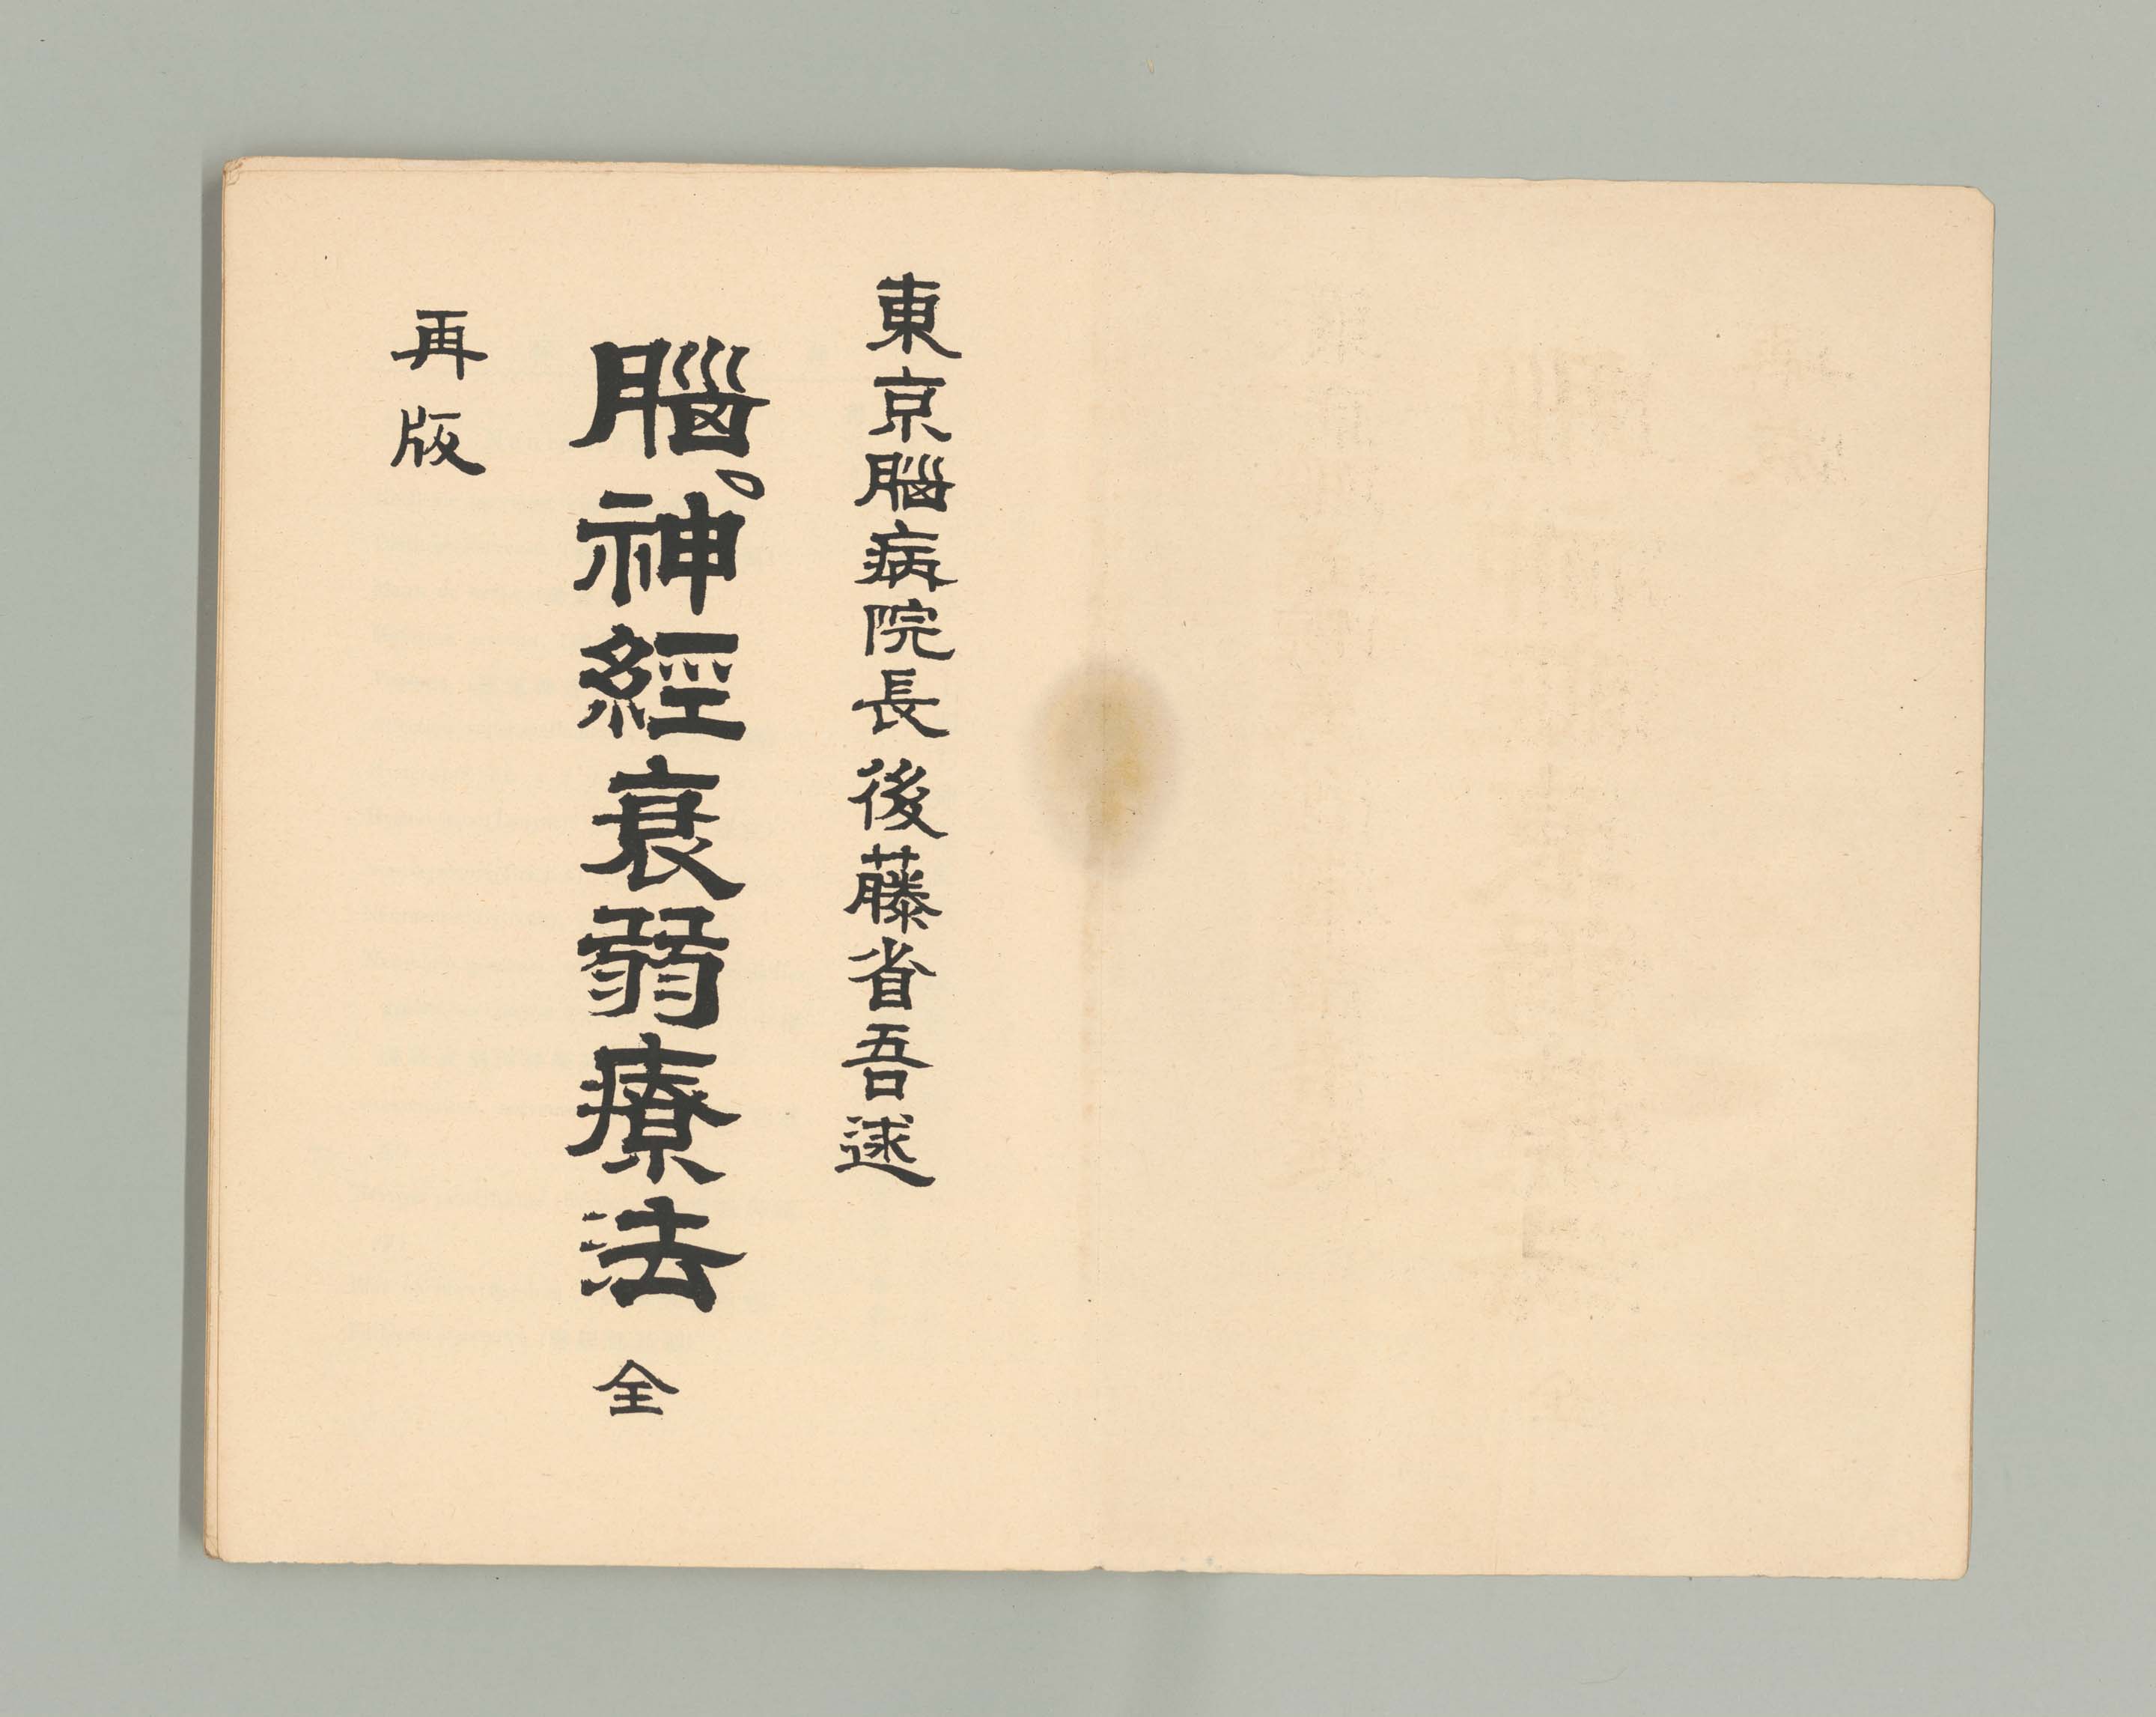 東京腦病院長 後藤省吾述
腦、神經衰弱療法 全
再版